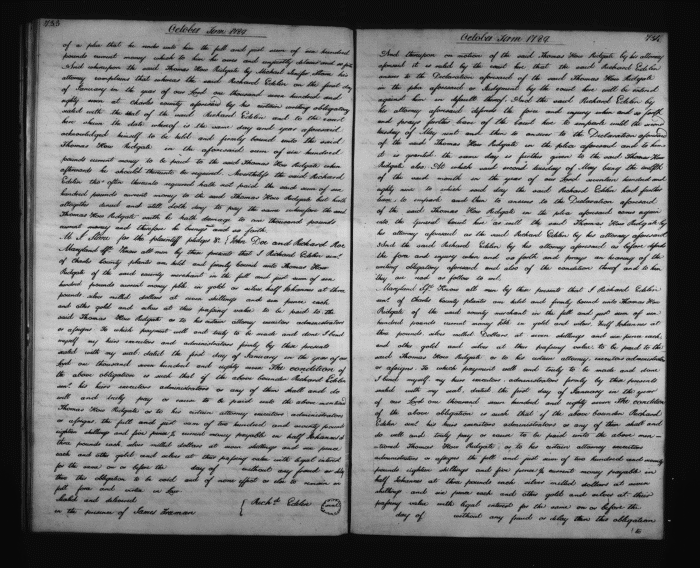 735
October Term 1789
of a plea that he render unto him the full and just sum of six hundred
pounds current money which to him he owes and unjustly detains and so forth
And whereupon the said Thomas How Ridgate by Michael Jenifer Stone his
attorney complains that whereas the said Richard Edelin on the first day
of January in the year of our Lord one thousand seven hundred and
eighty seven at charles county aforesaid by his certain writing obligatory
sealed with the seal of the said Richard Edelin and to the court
here shewn the date whereof is the same day and year aforesaid
acknowledged himself to be held and firmly bound unto the said
Thomas How Ridgate in the aforesaid sum of six hundred
pounds current money to be paid to the said Thomas How Ridgate when
afterwards he should thereunto be required Nevertheless the said Richard
Edelin tho' often thereunto required hath not paid the said sum of six
hundred pounds current money to the said Thomas How Ridgate but hath
altogether denied and still doth deny to pay the same wherefore the said
Thomas How Ridgate saith he hath damage to one thousand pounds
current money and therefore he brings suit and so forth
M J Stone for the plaintiff pledges &c John Doe and Richard Roe
Maryland ss. Know all men by these presents that I Richard Edelin
of Charles County planter am held and firmly bound unto Thomas How
Ridgate of the said county merchant in the full and just sum of six
hundred pounds current money payable in gold or silver half Johannes at three
pounds silver milled dollars at seven shillings and six pence each
and other gold and silver at their passing value to be paid to the
said Thomas How Ridgate or to his certain attorney executors administrators
or assigns To which payment well and truly to be made and done I bind
myself my heirs executors and administrators firmly by these presents
sealed with my seal dated the first day of January in the year of our
Lord one thousand seven hundred and eighty seven The condition of
the above obligation is such that if the above bounden Richard Edelin
his heirs executors administrators or any of them shall and do
well and truly pay or cause to be paid unto the above named
Thomas How Ridgate or to his certain attorney executors administrators
or assigns the full and just sum of two hundred and ninety pounds
eighteen shillings and five pence current money payable in half Johannes at
three pounds each silver milled dollars at seven shillings and six pence
each and other gold and silver at their passing value with legal interest
for the same on or before the day of without any fraud or delay
then this obligation to be void and of none effect or else to remain in
full force and virtue in law
Sealed and delivered
in the presence of James Freeman
Richd. Edelin (seal)
736
October Term 1789
And thereupon on motion of the said Thomas How Ridgate by his attorney
aforesaid it is ruled by the court here that the said Richard Edelin
answer to the Declaration aforesaid of the said Thomas How Ridgate
in the plea aforesaid or Judgment by the court here will be entered
against him in default thereof. And the said Richard Edelin by
his attorney aforesaid defends the force and injury when and so forth
and prays further leave of the court here to imparle until the second
tuesday of May next and then to answer to the Declaration aforesaid
of the said Thomas How Ridgate in the plea aforesaid and to him
it is granted the same day is further given to the said Thomas How
Ridgate also At which said second tuesday of May being the twelfth
of the said month in the year of our Lord seventeen hundred and
eighty nine to which said day the said Richard Edelin had further
leave to imparle and then to answer to the Declaration aforesaid
of the said Thomas How Ridgate in the plea aforesaid comes again
into the court here as well the said Thomas How Ridgate by
his attorney aforesaid as the said Richard Edelin by his attorney aforesaid
And the said Richard Edelin by his attorney aforesaid as before defends
the force and injury when and so forth and prays an hearing of the
writing obligatory aforesaid and also of the condition thereof and to him
they are read as follows to wit.
Maryland ss. Know all men by these presents that I Richard Edelin
of Charles County planter am held and firmly bound unto Thomas How
Ridgate of the said county merchant in the full and just sum of six
hundred pounds current money payable in gold and silver. Half Johannes at
three pounds silver milled Dollars at seven shillings and six pence each
and other gold and silver at their passing value to be paid to the
said Thomas How Ridgate or to his certain attorney executors administrators
or assigns To which payment well and truly to be made and done
I bind myself my heirs executors and administrators firmly by these presents
sealed with my seal dated the first day of January in the year
of our Lord one thousand seven hundred and eighty seven The condition
of the above obligation is such that if the above bounden Richard
Edelin his heirs executors administrators or any of them shall and
do well and truly pay or cause to be paid unto the above men-
tioned Thomas How Ridgate or to his certain attorney executors
administrators or assigns the full and just sum of two hundred and ninety
pounds eighteen shillings and five pence current money payable in
half Johannes at three pounds each silver milled dollars at seven
shillings and six pence each and other gold and silver at their
passing value with legal interest for the same on or before the
day of without any fraud or delay then this obligation